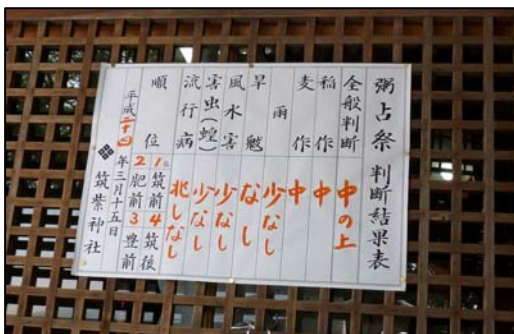 粥占祭判断結果表
全般判断 中の上
稲作 中
麦作 中
雨 少なし
旱魃 なし
風水害 少なし
害虫(蝗) 少なし
流行病 兆しなし
順位 1位筑前 4筑後
2肥前 3豊前
平成二十四年三月十五日
筑紫神社